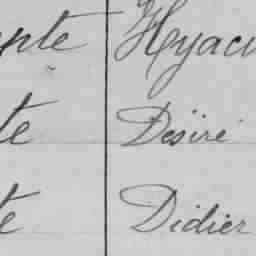 pte Hyaci
te Désiré
te Didier